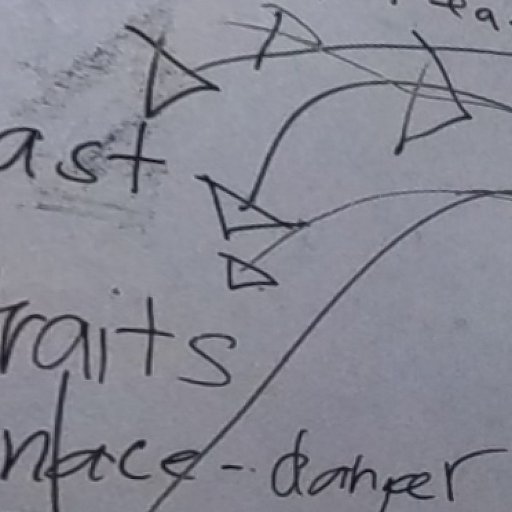 ea
ast
raits
nface - danger